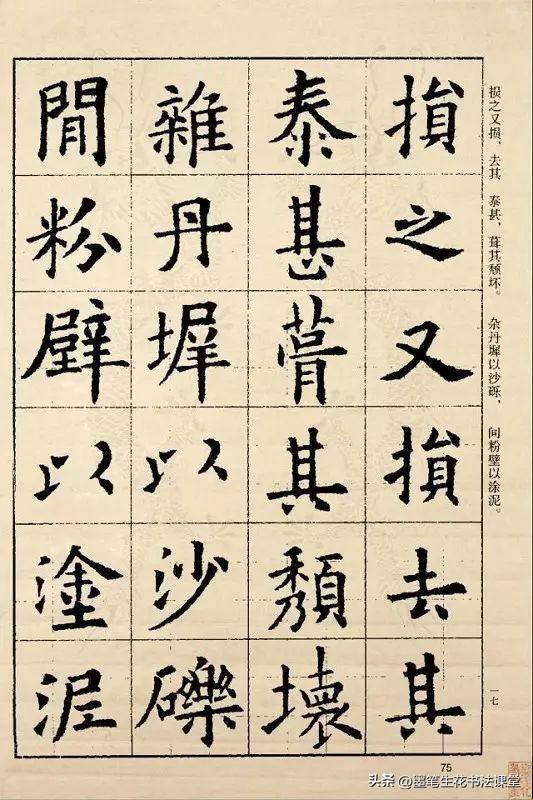 损之又损，去其 泰甚，葺其颓坏。 杂丹墀以沙砾， 间粉壁以涂泥。
損之又損去其
泰甚葺其頹壞
雜丹墀以沙礫
間粉壁以塗泥
一七
75
头条 @墨笔生花书法课堂